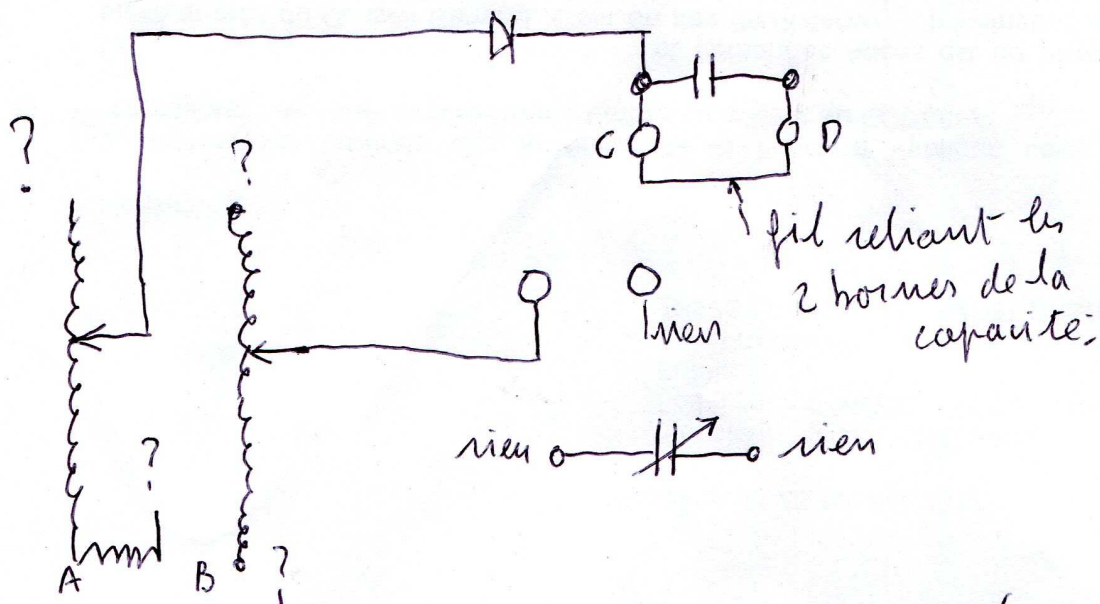 C
D
?
?
fil reliant les
2 bornes de la
capacité.
rien
?
rien
rien
A
B
?